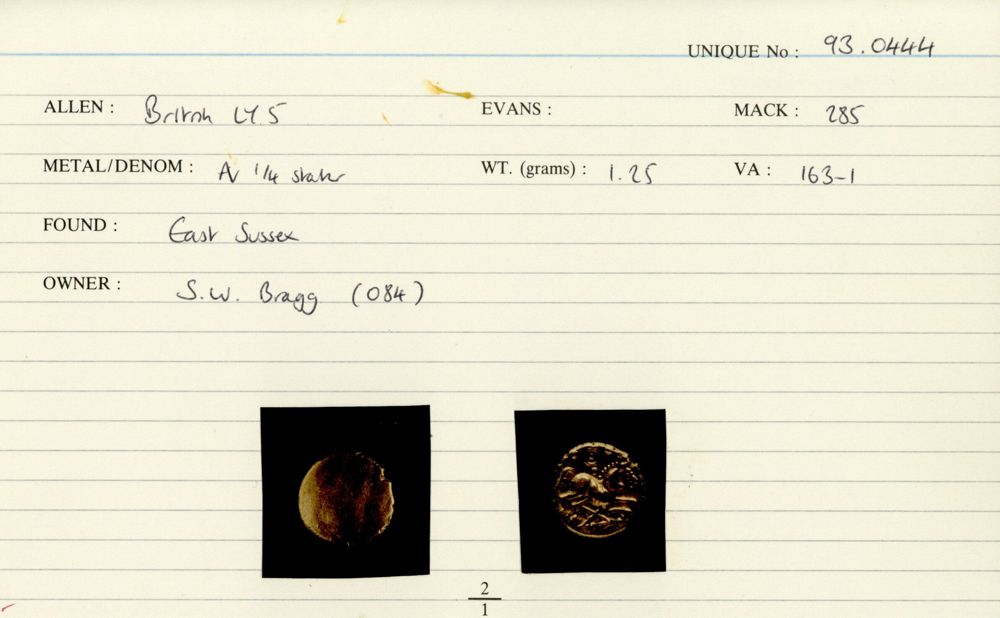 UNIQUE No : 93.0444
ALLEN : British LY.5 EVANS : MACK : 285
METAL/DENOM : AV 1/4 stater WT. (grams) : 1.25 VA : 163-1
FOUND : East Sussex
OWNER : S.W. Bragg (084)
2
1